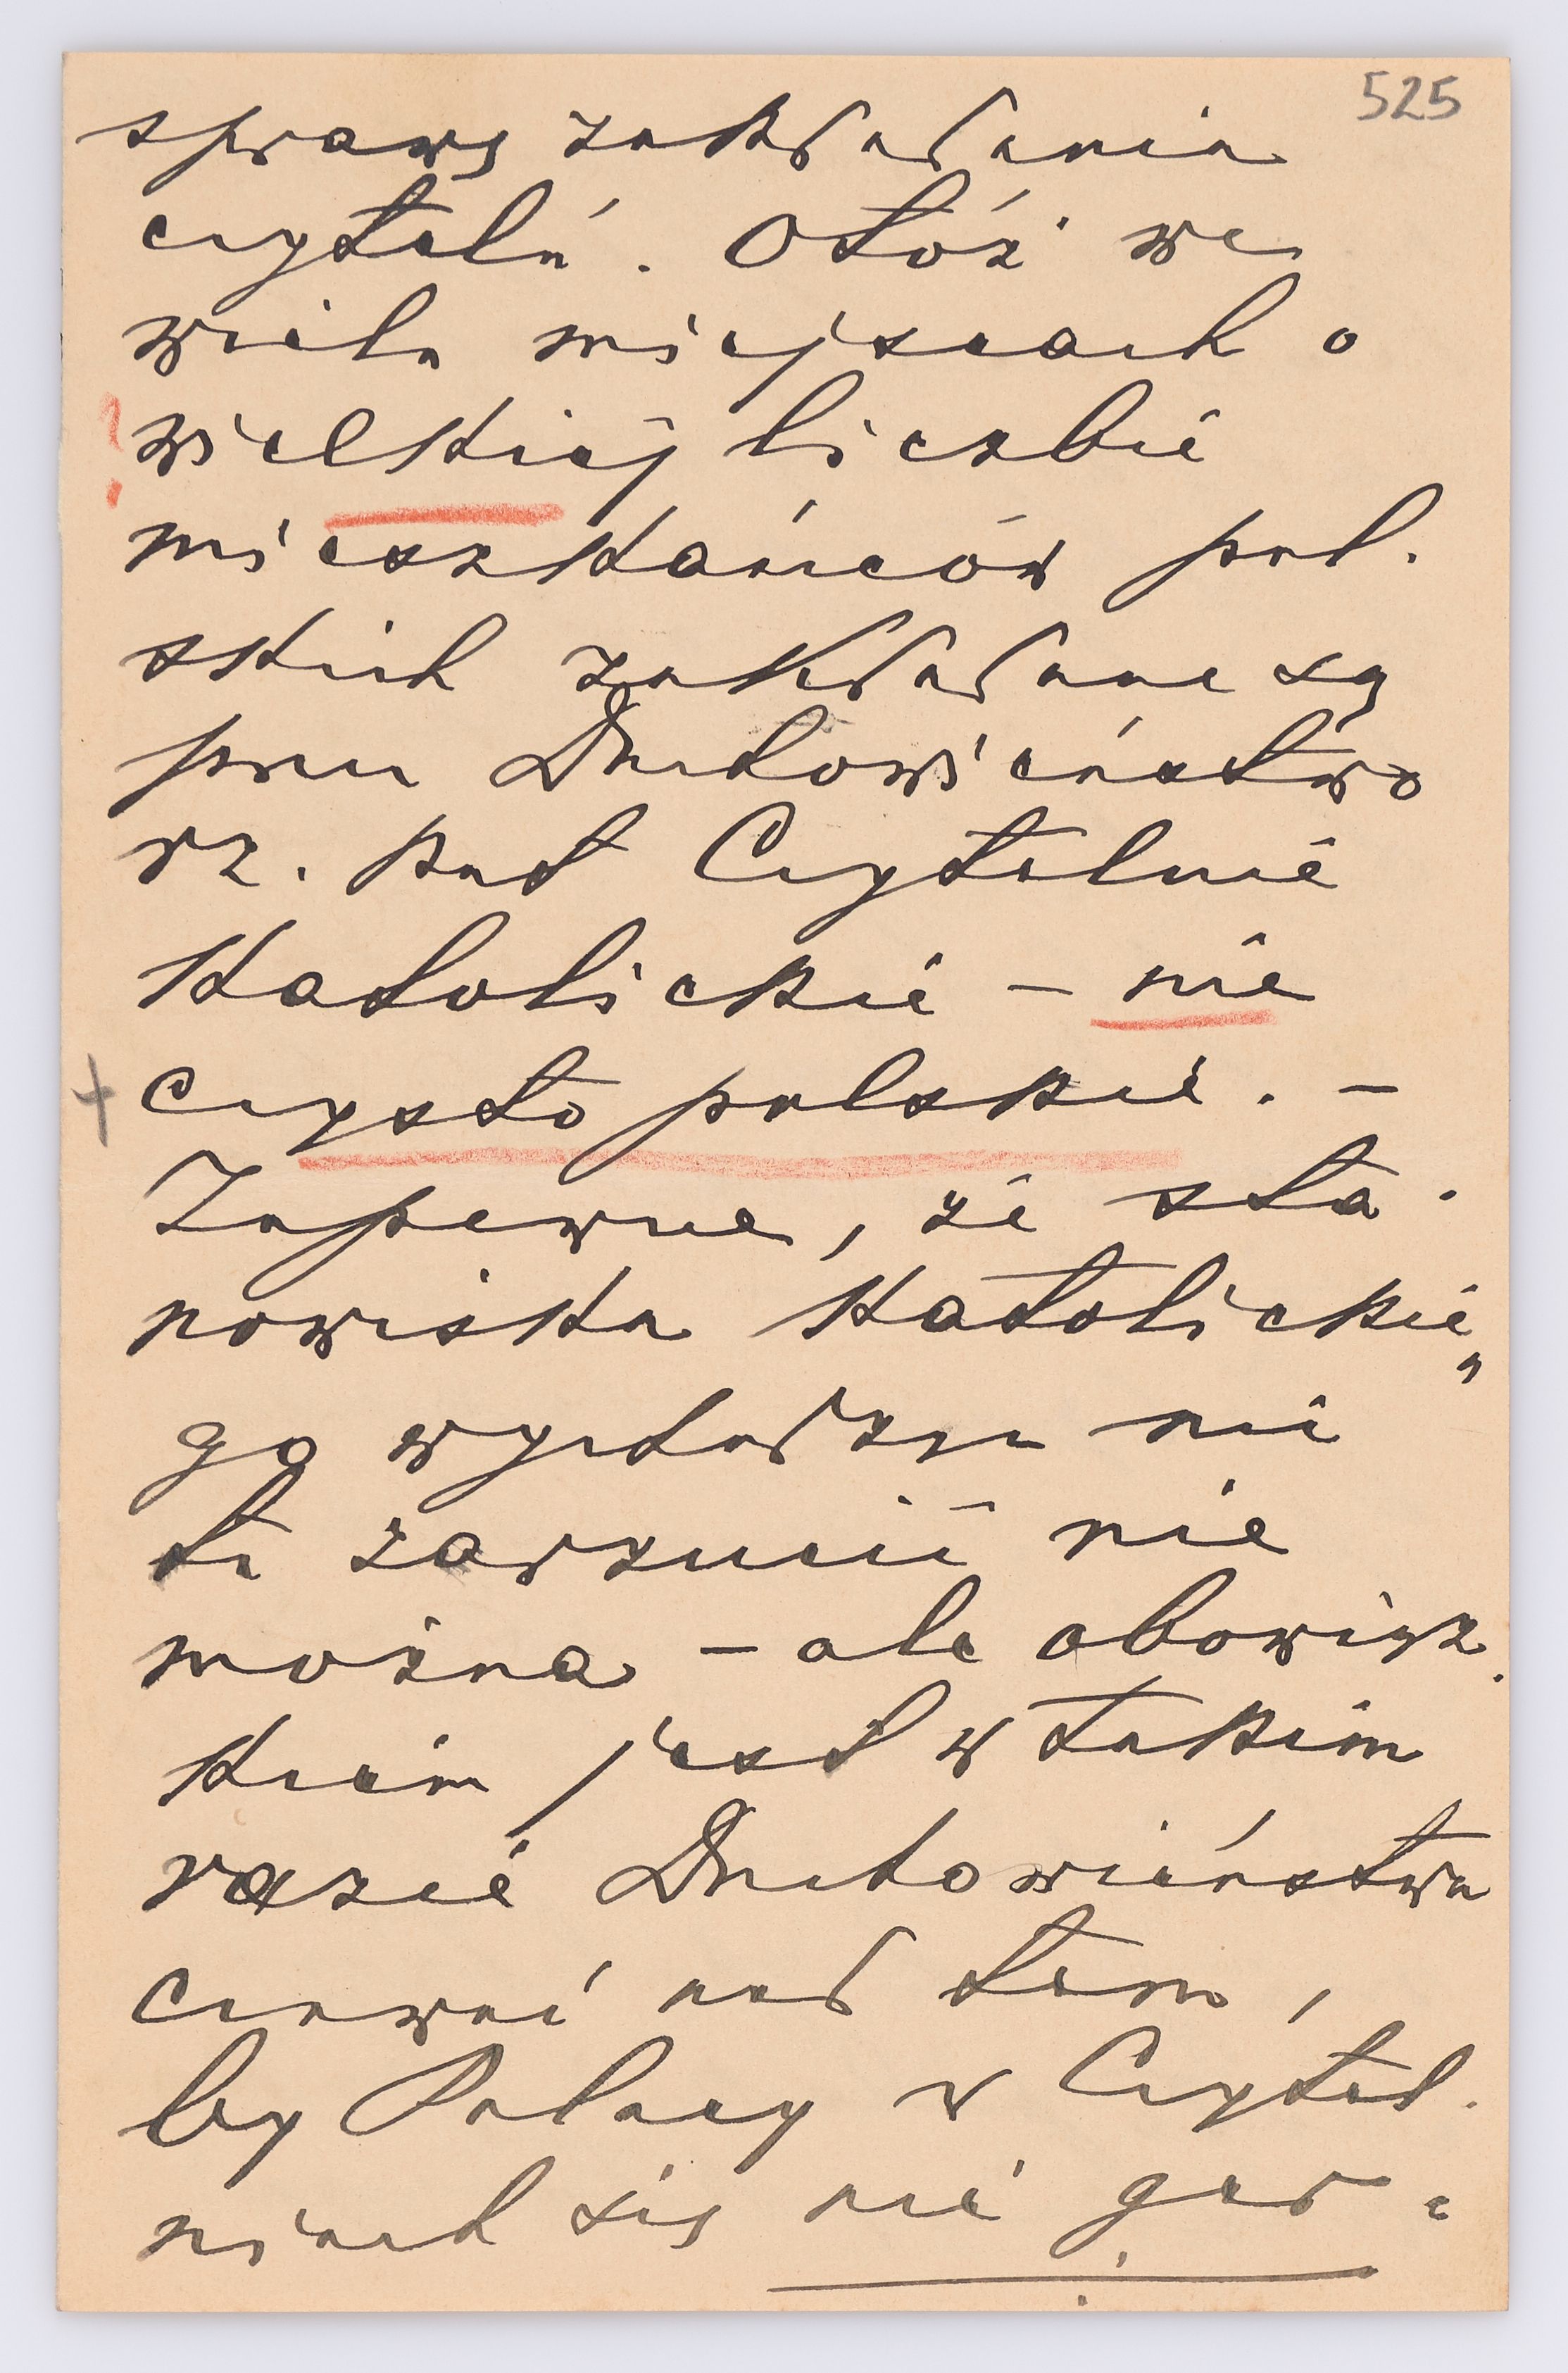 525
sprawę zakładania
czytelń. Otóż we
wielu miejscach o
wielkiej liczbie
mieszkańców pol-
skich zakładane są
przez Duchowieństwo
rz. kat Czytelnie
Katolickie – nie
czysto polskie. –
Zapewne, że sta-
nowiska Katolickie
go wychodząc nic
tu zarzucić nie
można – ale obowiąz-
kiem jest w takim
razie Duchowieństwa
czuwać nad tem,
by Polacy w Czytel-
niach się nie ger-